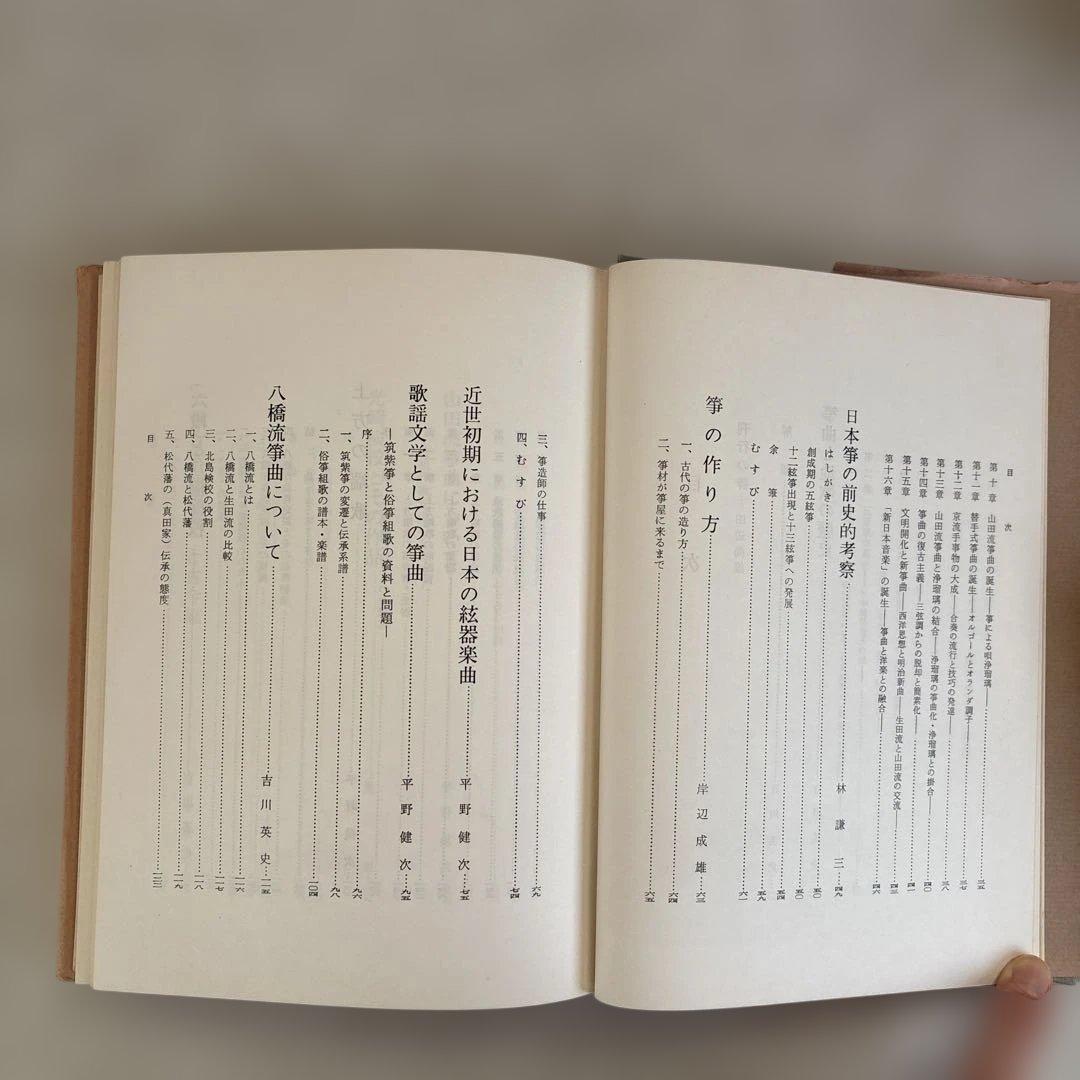 目次
第十章 山田流箏曲の誕生――箏による唄浄瑠璃――……三五
第十一章 替手式箏曲の誕生――オルゴールとオランダ調子――……三七
第十二章 京流手事物の大成――合奏の流行と技巧の発達――……三八
第十三章 山田流箏曲と浄瑠璃の結合――浄瑠璃の箏曲化・浄瑠璃との掛合――……四〇
第十四章 箏曲の復古主義――三弦調からの脱却と簡素化――……四一
第十五章 文明開化と新箏曲――西洋思想と明治新曲――生田流と山田流の交流――……四三
第十六章 「新日本音楽」の誕生――箏曲と洋楽との融合――……四六
日本箏の前史的考察……林謙三……四九
はしがき……五〇
創成期の五絃箏……五〇
十二絃箏出現と十三絃箏への発展……五四
余箋……五九
むすび……六一
箏の作り方……岸辺成雄……六三
一、古代の箏の造り方……六四
二、箏材が箏屋に来るまで……六五
三、箏造師の仕事……六九
四、むすび……七四
近世初期における日本の絃器楽曲……平野健次……七五
歌謡文学としての箏曲……平野健次……九五
―筑紫箏と俗箏組歌の資料と問題―
序……九六
一、筑紫箏の変遷と伝承系譜……九八
二、俗箏組歌の譜本・楽譜……一〇四
八橋流箏曲について……吉川英史……一一五
一、八橋流とは……一一六
二、八橋流と生田流の比較……一一七
三、北島検校の役割……一一八
四、八橋流と松代藩……一一九
五、松代藩の（真田家）伝承の態度……一二六
目次